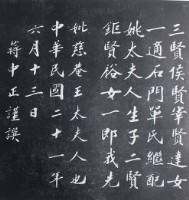 三賢侯賢宰賢達女
一適石門單氏繼配
姚太夫人生子二賢
鉅賢俗女一即我先
妣慈庵王太夫人也
中華民國二十一年
六月十三日
蔣中正謹譔